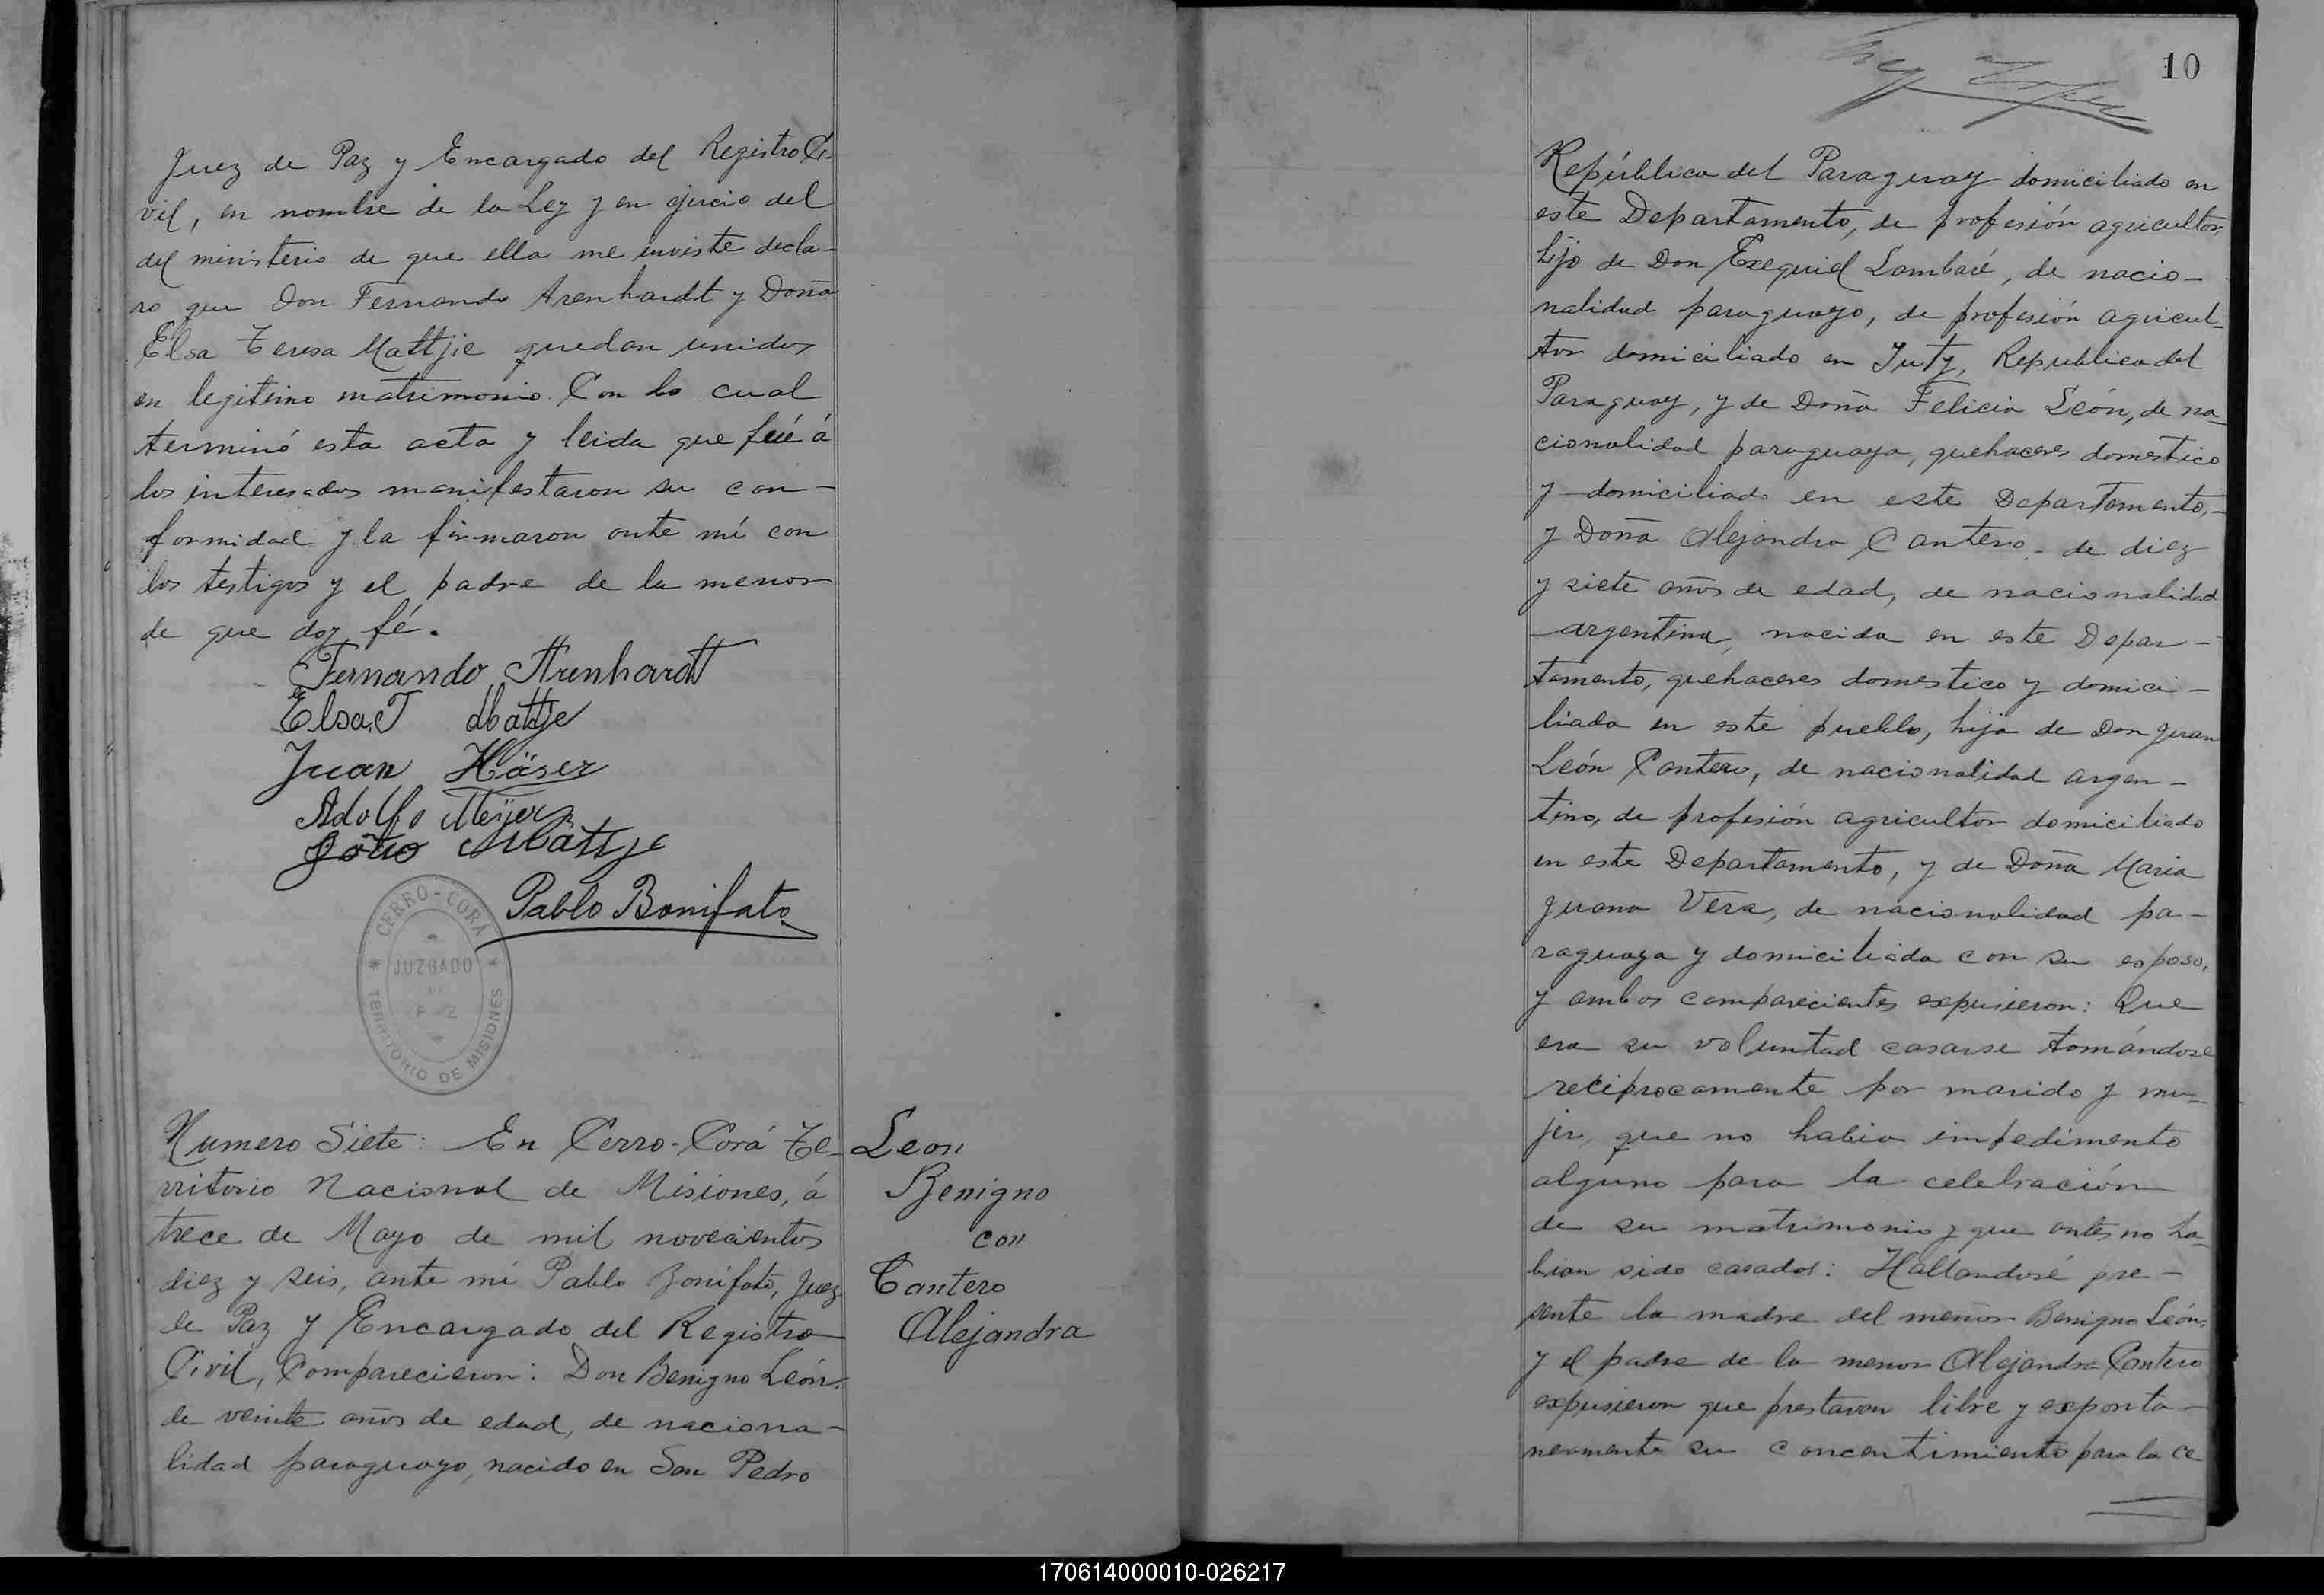 Juez de Paz y Encargado del Registro Ci-
vil, en nombre de la Ley y en ejercio del
del ministerio de que ella me inviste decla-
ro que Don Fernando Arenhardt y Doña
Elsa Teresa Mattjie quedan unidos
en legitimo matrimonio. Con lo cual
terminó esta acta y leida que fué á
los interesados manifestaron su con-
formidad y la firmaron ante mi con
los testigos y el padre de la menor
de que doy fé.
Fernando Arenhardt
Elsa T Mattje
Juan Häser
Adolfo Meijer
Mattje
Pablo Bonifato
CERRO-CORÁ
JUZGADO
DE
PAZ
TERRITORIO DE MISIONES
Numero Siete: En Cerro-Corá Te-
rritorio Nacional de Misiones, á
trece de Mayo de mil novecientos
diez y seis, ante mi Pablo Bonifato, Juez
de Paz y Encargado del Registro
Civil, Comparecieron: Don Benigno León,
de veinte años de edad, de naciona-
lidad paraguayo, nacido en San Pedro
Leon
Benigno
con
Cantero
Alejandra
10
República del Paraguay domiciliado en
este Departamento, de profesión agricultor,
hijo de Don Exequiel Lambaré, de nacio-
nalidad paraguayo, de profesión agricul-
tor domiciliado en Yuty, Republica del
Paraguay, y de Doña Felicia León, de na-
cionalidad paraguaya, quehaceres domestico
y domiciliado en este Departamento,-
y Doña Alejandra Cantero - de diez
y siete años de edad, de nacionalidad
argentina, nacida en este Depar-
tamento, quehaceres domestico y domici-
liada en este pueblo, hija de Don Juan
León Cantero, de nacionalidad argen-
tino, de profesión agricultor domiciliado
en este Departamento, y de Doña Maria
Juana Vera, de nacionalidad pa-
raguaya y domiciliada con su esposo,
y ambos comparecientes expusieron: Que
era su voluntad casarse tomándose
reciprocamente por marido y mu-
jer, que no habia impedimento
alguno para la celebración
de su matrimonio y que antes no ha-
bian sido casados: Hallandosé pre-
sente la madre del menor Benigno León,
y el padre de la menor Alejandra Cantero
expusieron que prestavan libre y exponta-
neamente su concentimiento para la ce
170614000010-026217